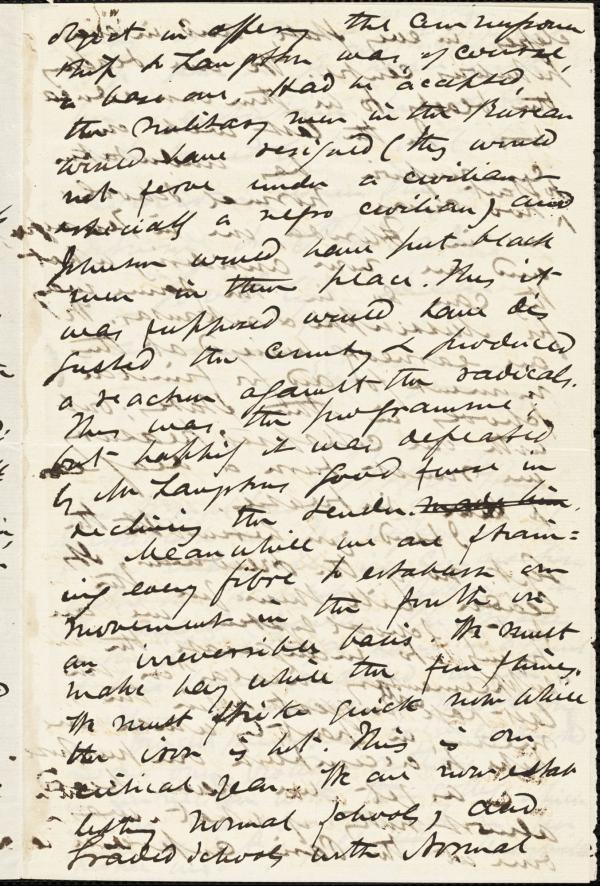 object in offering the Commissioner
ship to Langston was, of course,
a base one. Had he accepted,
the military men in the Bureau
would have resigned (they would
not serve under a civilian —
especially a negro civilian) and
Johnson would have put black
men in their place. This it
was supposed would have dis
gusted the country & produced
a reaction against the radicals.
This was the programme;
but happily it was defeated
by Mr Langstons good sense in
declining the tender.
Meanwhile we are strain=
ing every fibre to establish our
movement in the South on
an irreversible basis. We must
make hay while the sun shines.
We must strike quick now while
the iron is hot. This is our
critical year. We are now estab
lishing Normal Schools, and
Graded Schools with Normal